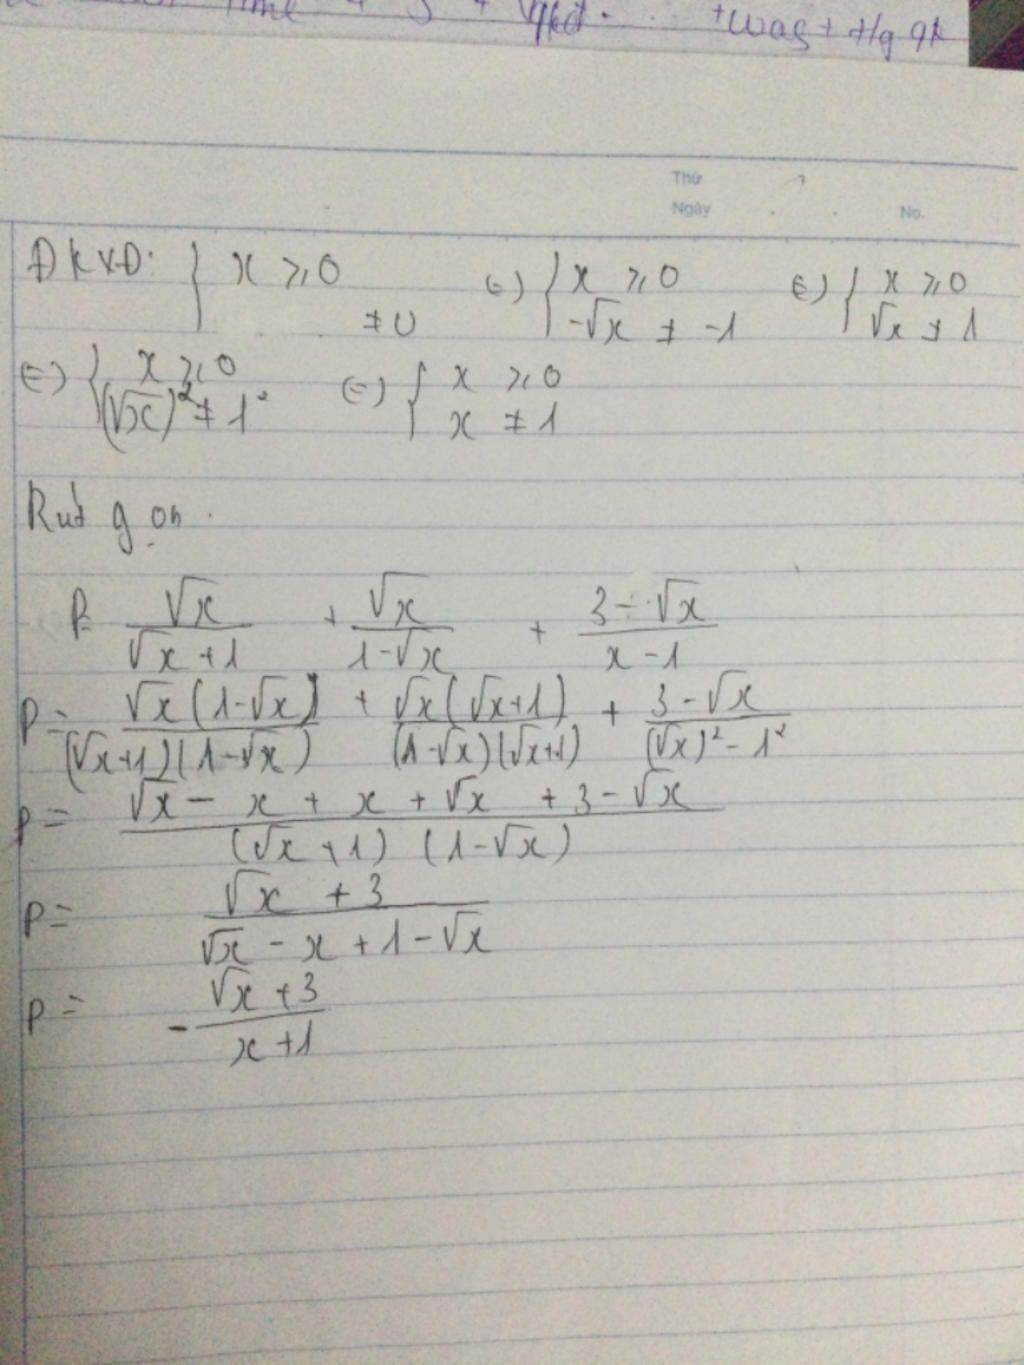 Time + S + V
+ was + Hg qk
Thứ
Ngày No.
ĐKXĐ: { x ⩾ 0 (=) { x ⩾ 0 (=) { x ⩾ 0
≠ 0 -√x ≠ -1 √x ≠ 1
(=) { x ⩾ 0 (=) { x ⩾ 0
(√x)² ≠ 1² x ≠ 1
Rút gọn.
P= √x/(√x+1) + √x/(1-√x) + (3-√x)/(x-1)
P= √x(1-√x)/((√x+1)(1-√x)) + √x(√x+1)/((1-√x)(√x+1)) + (3-√x)/((√x)²-1²)
P= (√x - x + x + √x + 3 - √x)/((√x+1)(1-√x))
P= (√x+3)/(√x - x + 1 - √x)
P= -(√x+3)/(x+1)